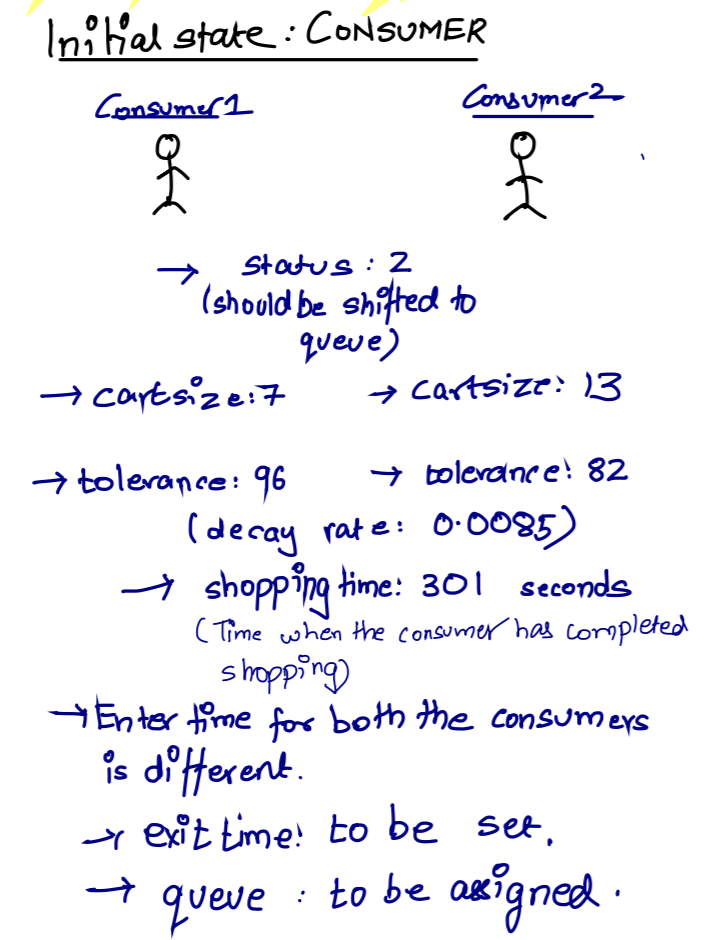 Initial state: CONSUMER
Consumer1 Consumer2
→ status: 2
(should be shifted to
queue)
→ cartsize:7 → cartsize: 13
→ tolerance: 96 → tolerance: 82
(decay rate: 0.0085)
→ shopping time: 301 seconds
(Time when the consumer has completed
shopping)
→ Enter time for both the consumers
is different.
→ exit time: to be set.
→ queue : to be assigned.